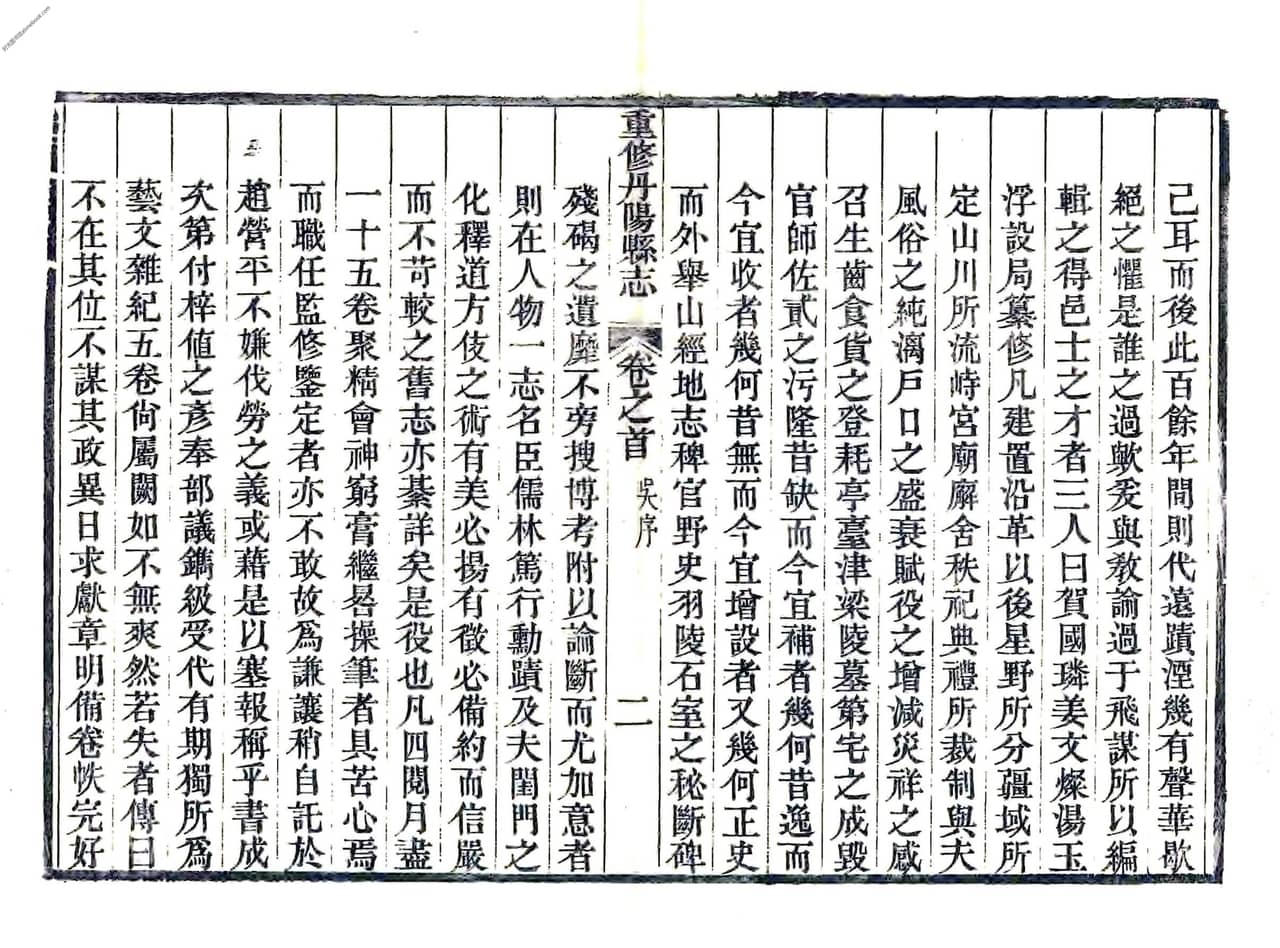 己耳而後此百餘年間則代遠蹟湮幾有聲華歇
絕之懼是誰之過歟爰與敎諭過于飛謀所以編
輯之得邑士之才者三人曰賀國璘姜文燦湯玉
浮設局纂修凡建置沿革以後星野所分疆域所
定山川所流峙宮廟廨舍秩祀典禮所裁制與夫
風俗之純漓戸口之盛衰賦役之增減災祥之感
召生齒食貨之登耗亭臺津梁陵墓第宅之成毀
官師佐貳之污隆昔缺而今宜補者幾何昔逸而
今宜收者幾何昔無而今宜增設者又幾何正史
而外舉山經地志稗官野史羽陵石室之秘斷碑
重修丹陽縣志 卷之首 吳序 二
殘碣之遺靡不旁搜博考附以論斷而尤加意者
則在人物一志名臣儒林篤行勳蹟及夫閨門之
化釋道方伎之術有美必揚有徵必備約而信嚴
而不苛較之舊志亦綦詳矣是役也凡四閱月盡
一十五卷聚精會神窮膏繼晷操筆者具苦心焉
而職任監修鑒定者亦不敢故爲謙讓稍自託於
趙營平不嫌伐勞之義或藉是以塞報稱乎書成
次第付梓値之彥奉部議鐫級受代有期獨所爲
藝文雜紀五卷尙屬闕如不無爽然若失者傳曰
不在其位不謀其政異日求獻章明備卷帙完好